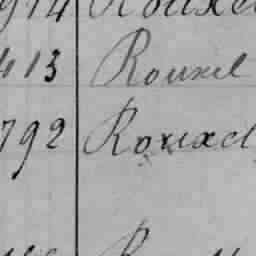 914 Rouxel
413 Rouxel
792 Rouxel